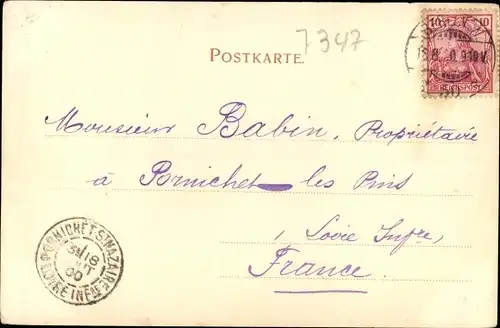 7347
POSTKARTE.
10 10
REICHSPOST
Monsieur Babin, Propriétaire
à Pornichet les Pins
Loire Infre.
France.
PORNICHET-ST NAZAIRE
LOIRE INFRE